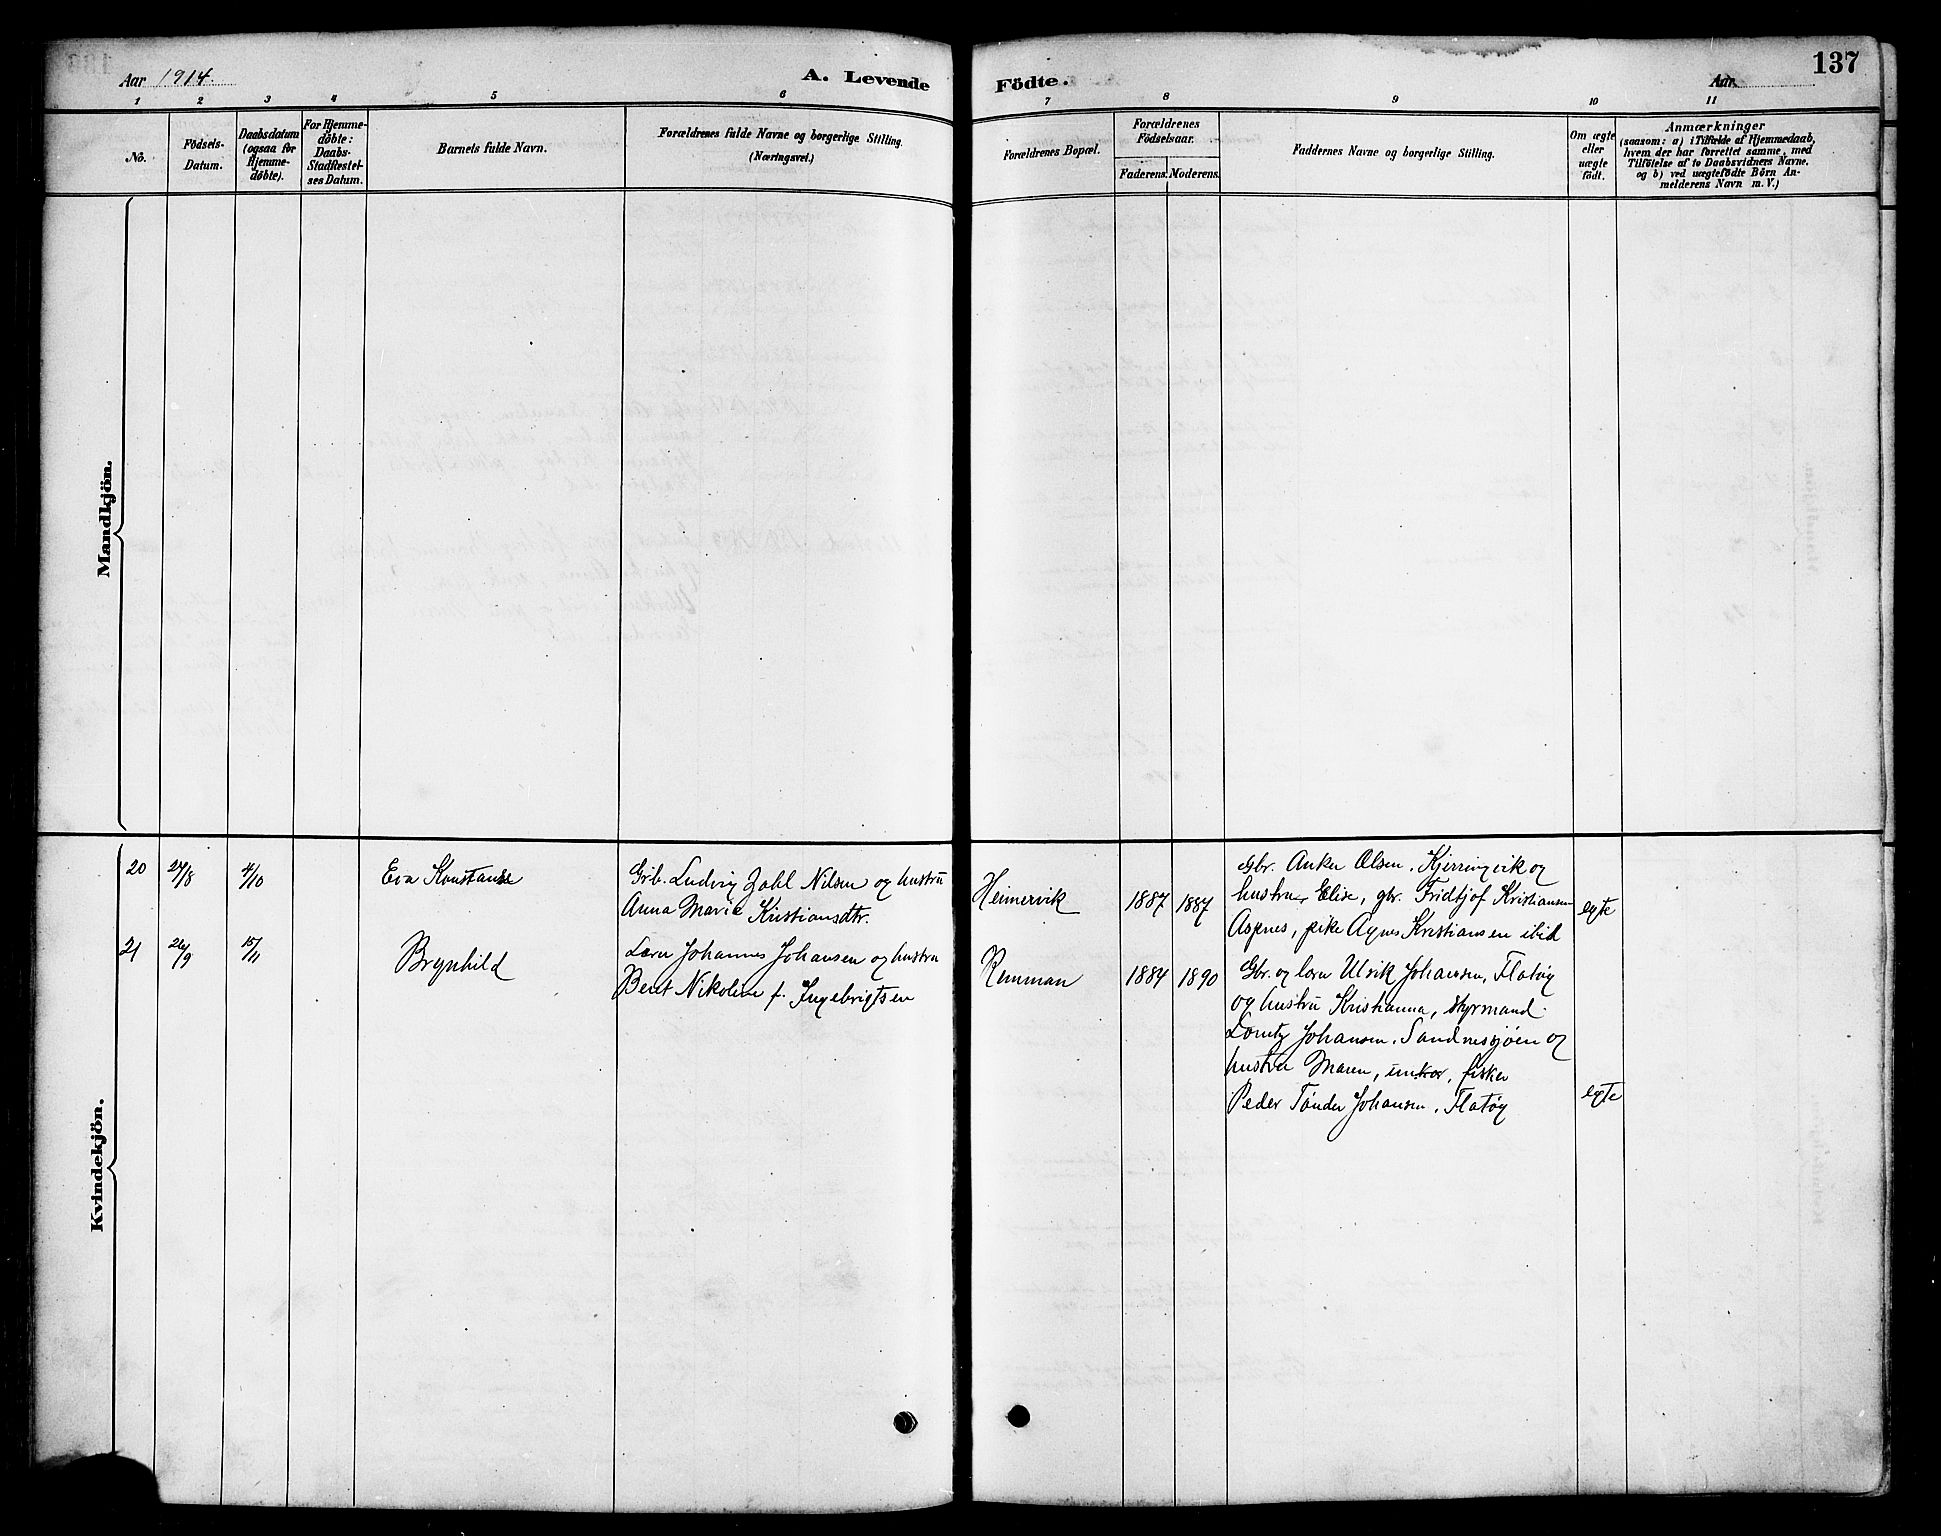 137
Aar 1914.
A. Levende
Födte.
Aar
1 2 3 4 5 6 7 8 9 10 11
No.
Födsels-
Datum.
Daabsdatum
(ogsaa for
Hjemme-
döbte).
For Hjemme-
döbte:
Daabs-
Stadfæstel-
ses Datum.
Barnets fulde Navn.
Forældrenes fulde Navne og borgerlige Stilling.
(Næringsvei.)
Forældrenes Bopæl.
Forældrenes
Födselsaar.
Faderens. Moderens.
Faddernes Navne og borgerlige Stilling.
Om ægte
eller
uægte
födt.
Anmærkninger
(saasom: a) i Tilfælde af Hjemmedaab,
hvem der har forrettet samme, med
Tilföielse af to Daabsvidners Navne.
og b) ved uægtefödte Börn An-
melderens Navn m. V.)
Mandkjön.
Kvindekjön.
20 27/8 4/10 Eva Konstanse
Grb. Ludvig Zahl Nilsen og hustru
Anna Marie Kristiansdtr.
Heimervik 1887 1887
Gbr. Anker Olsen, Kjerringvik og
hustru Elise, gbr. Fridtjof Kristiansen
Aspnes, pike Agnes Kristiansen ibid
egte
21 26/9 15/11 Brynhild
Lærer Johannes Johansen og hustru
Berit Nikoline f. Ingebrigtsen
Remman 1884 1890
Gbr. og lærer Ulrik Johansen, Flatøy
og hustru Kristianna, styrmand
Lorntz Johansen, Sandnessjøen og
hustru Maren, ungkar, fisker
Peder Tønder Johansen, Flatøy
egte